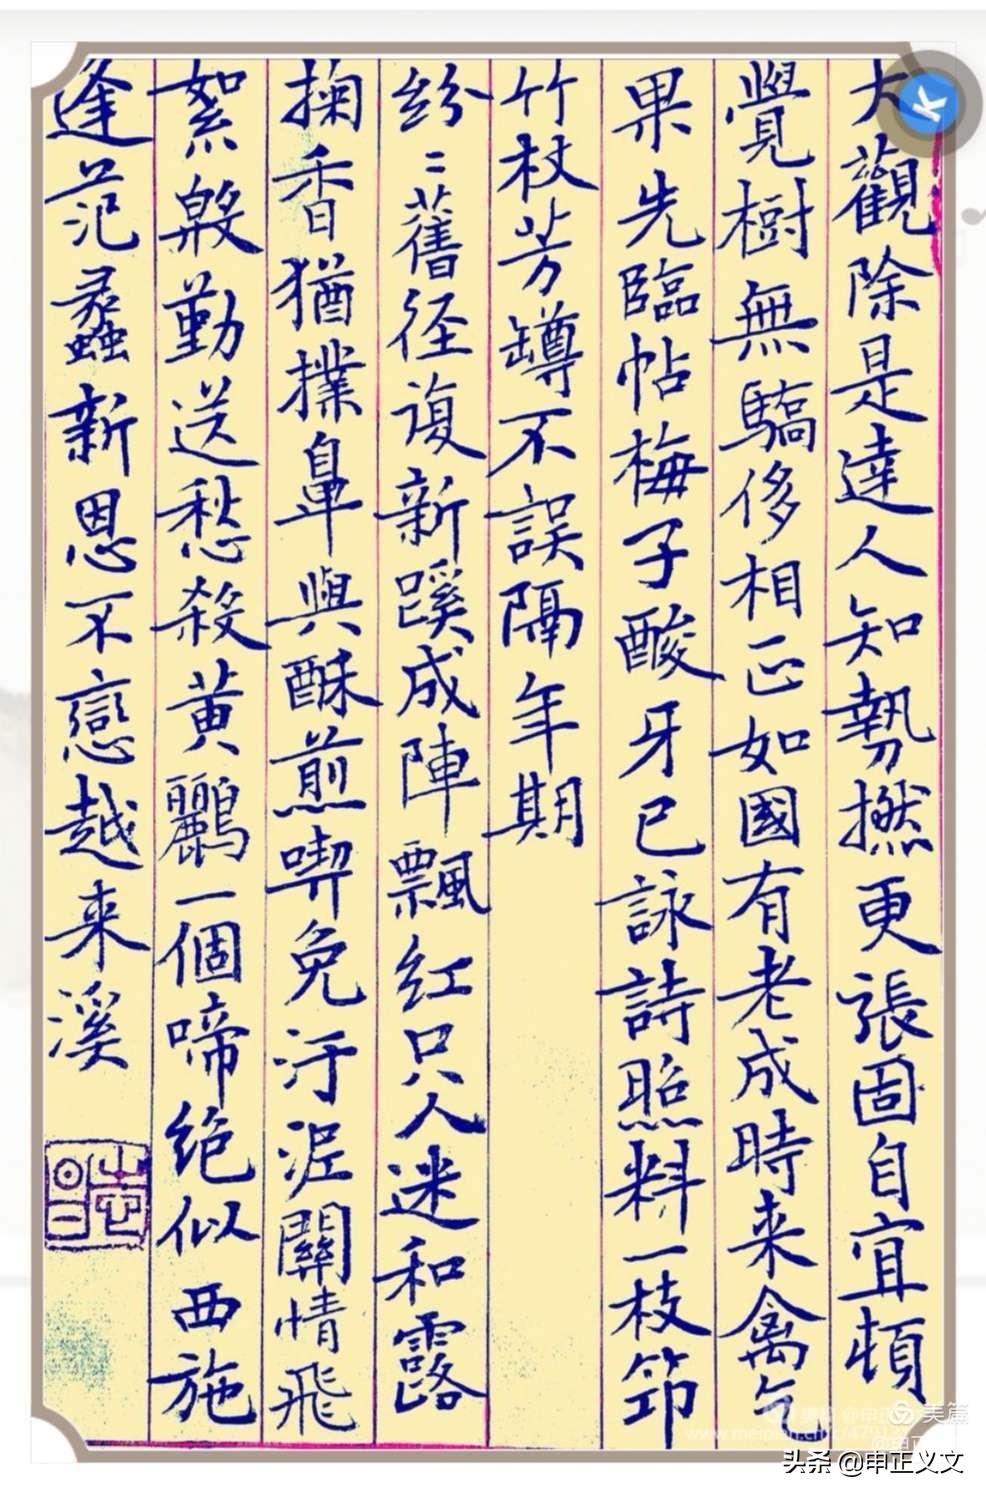 大觀除是達人知勢撚更張固自宜頓
覺樹無驕侈相正如國有老成時来禽与
果先臨帖梅子酸牙已詠詩照料一枝筇
竹杖芳罇不誤隔年期
紛〻舊径復新蹊成陣飄红只人迷和露
掬香猶撲鼻與酥煎喫免汙泥關情飛
絮慇勤送愁殺黄鸝一個啼绝似西施
逢范蠡新恩不戀越来溪
美篇
头条 @申正义文